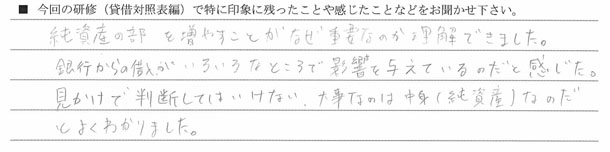 ■ 今回の研修（貸借対照表編）で特に印象に残ったことや感じたことなどをお聞かせ下さい。
純資産の部を増やすことがなぜ重要なのか理解できました。
銀行からの借入がいろいろなところで影響を与えているのだと感じた。
見かけで判断してはいけない、大事なのは中身(純資産)なのだ
とよくわかりました。